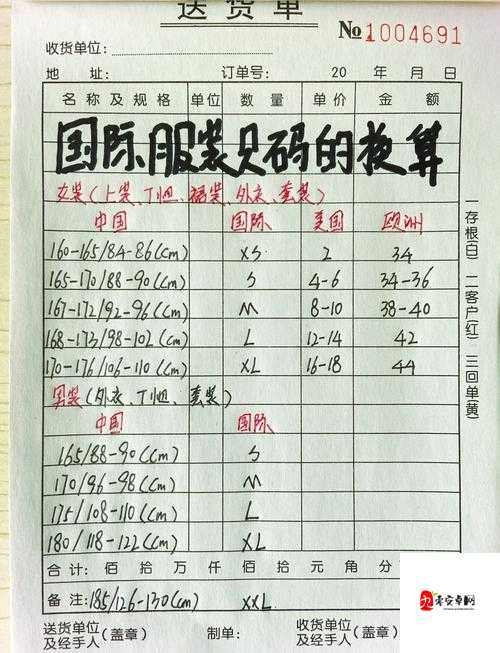 送货单
№1004691
收货单位:
地 址: 订单号: 20 年 月 日
名称及规格 单位 数量 单价 金额
国际服装尺码的换算
女装(上装、T恤、裙装、外衣、套装)
中国 国际 美国 欧洲
160-165/84-86(cm) XS 2 34
165-170/88-90(cm) S 4-6 34-36
167-172/92-96(cm) M 8-10 38-40
168-173/98-102(cm) L 12-14 42
170-176/106-110(cm) XL 16-18 44
男装(外衣、T恤、套装)
中国 国际
165/88-90(cm) S
170/96-98(cm) M
175/108-110(cm) L
180/118-122(cm) XL
合计: 佰 拾 万 仟 佰 拾 元 角 分
备注: 185/126-130(cm) XXL
送货单位及经手人(盖章) 制单: 收货单位及经手人
一存根(白) 二客户(红) 三回单(黄)
零安卓网